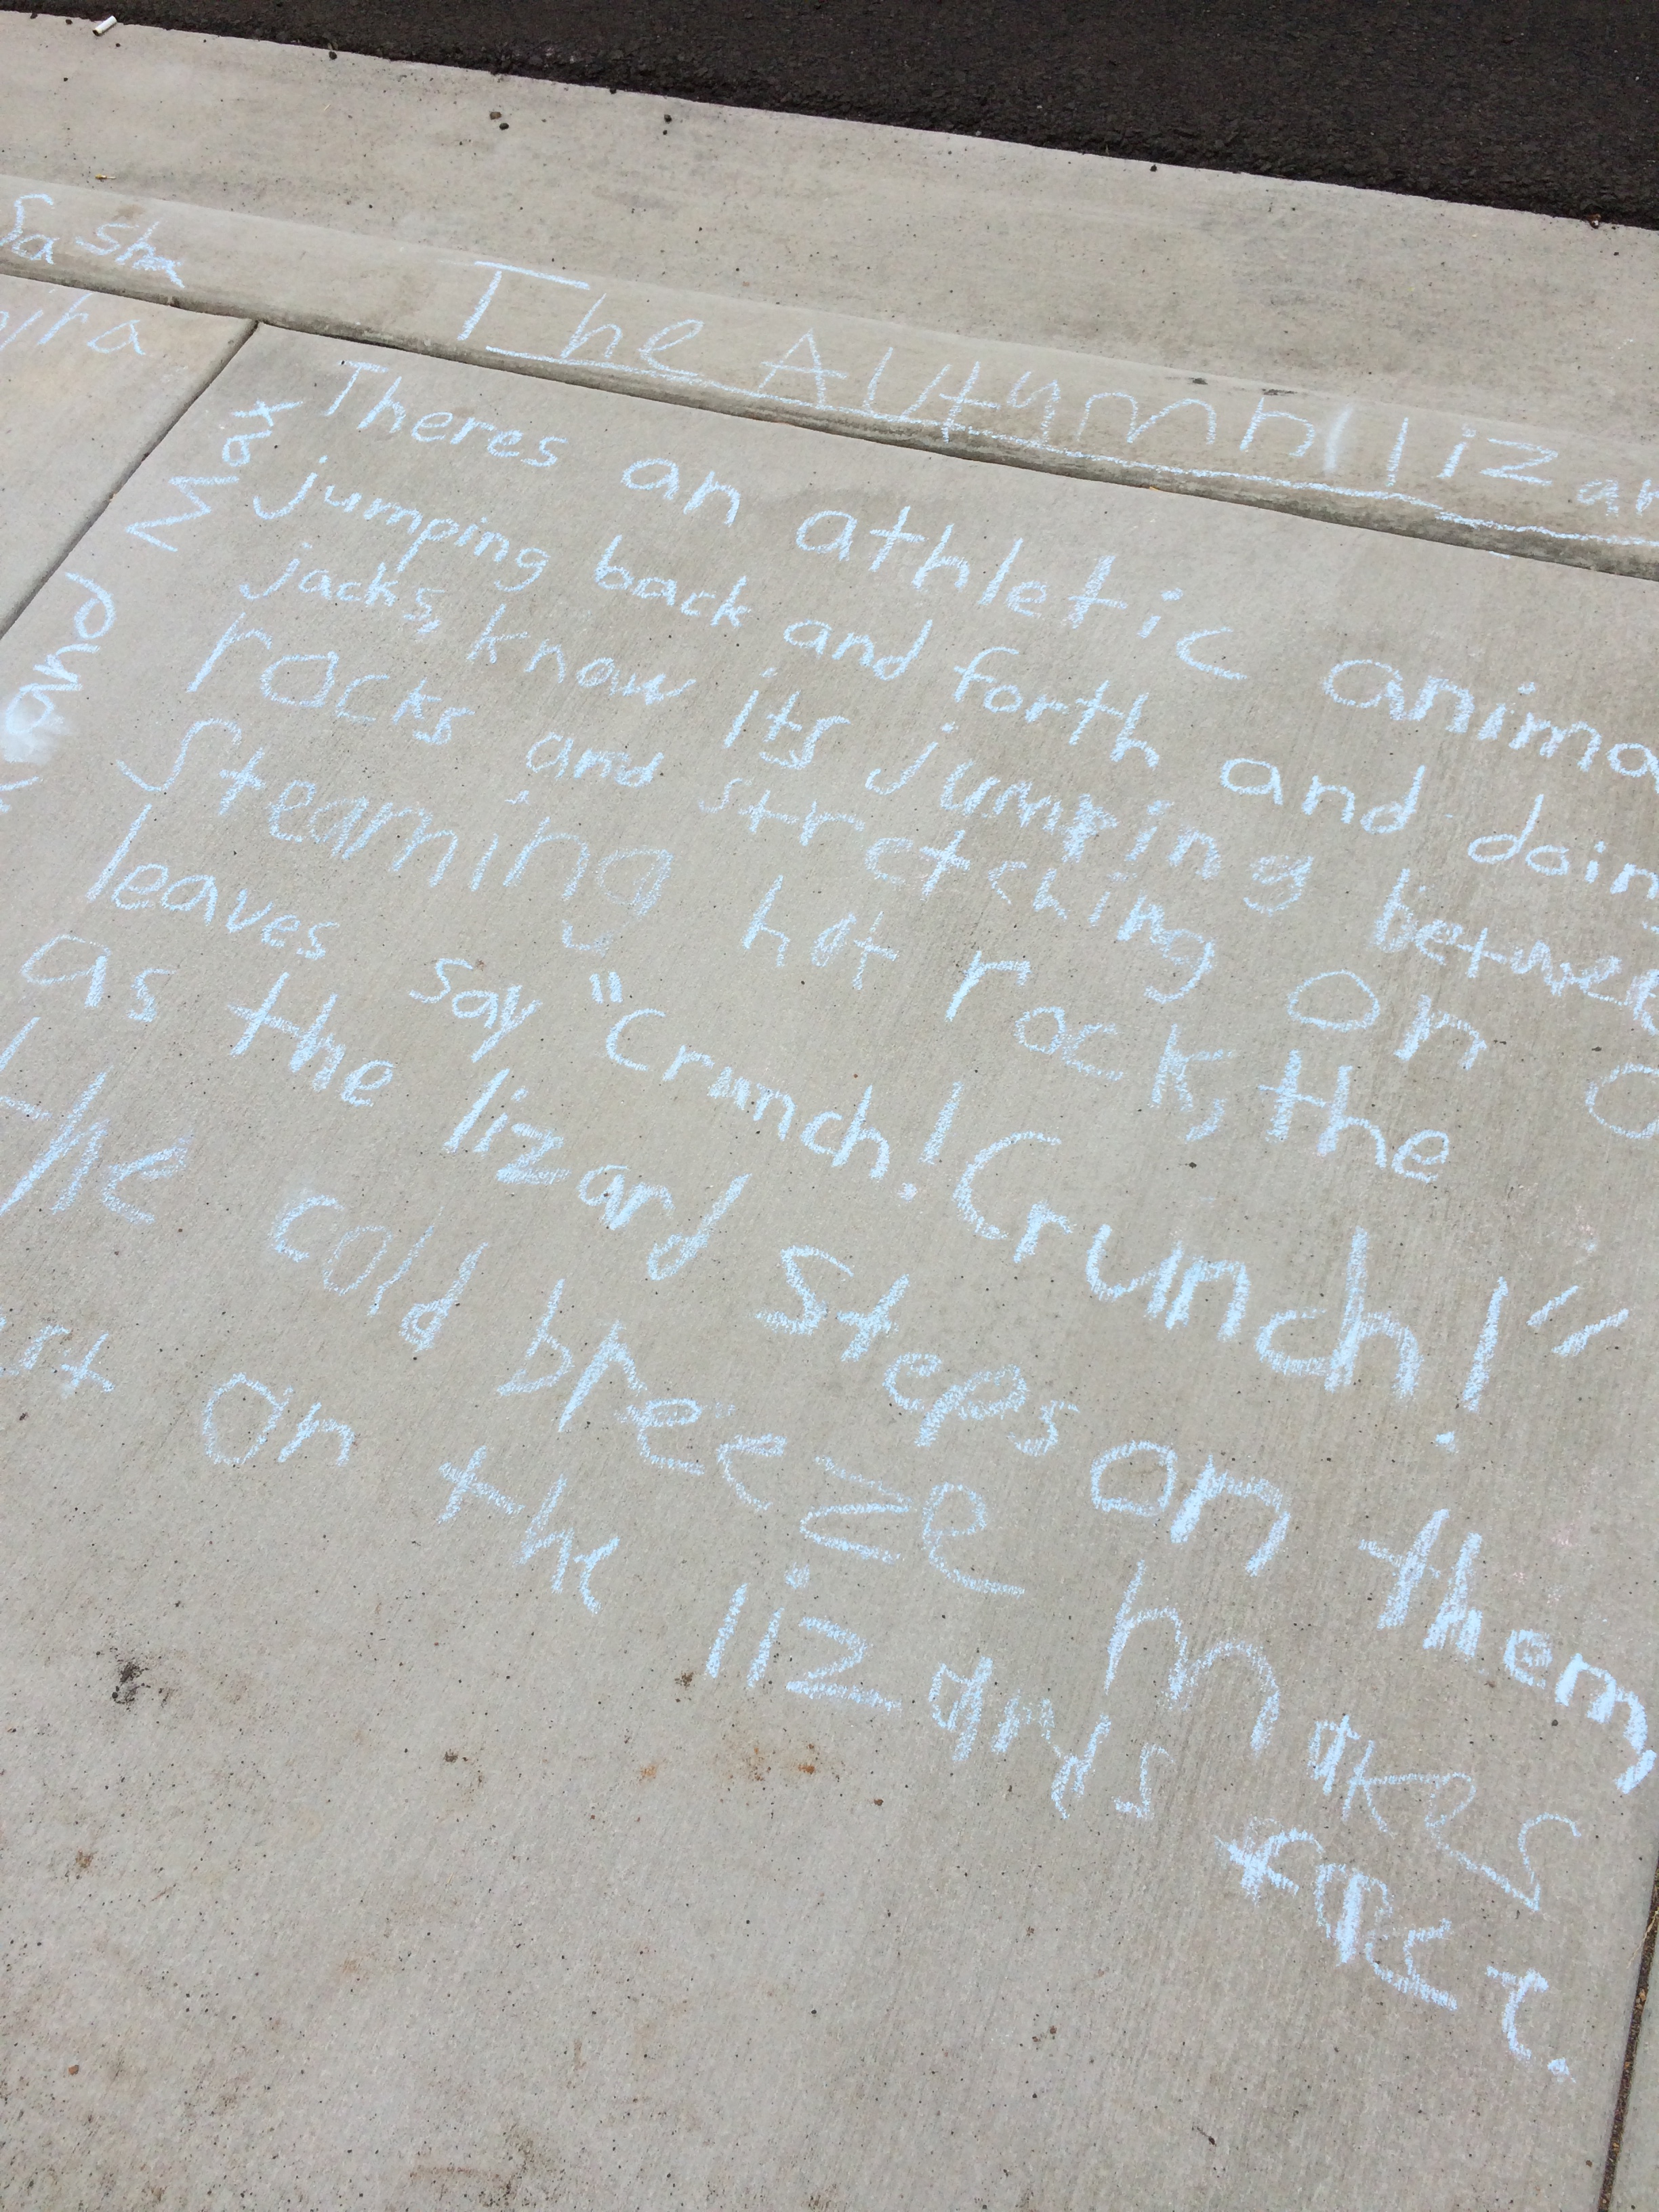 Sasha
The Autumn lizar
Theres an athletic anima
jumping back and forth and doing
jacks, know its jumping betwee
rocks and stretching on a
Steaming hot rock, the
leaves say "Crunch! Crunch!"
as the lizard Steps on them,
the cold breeze makes
on the lizards feet.
Max
and